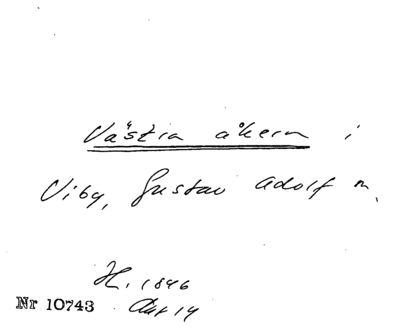 Västra åkern i
Viby, Gustav Adolf m.
H. 1846
Nr 10743 Akt 14